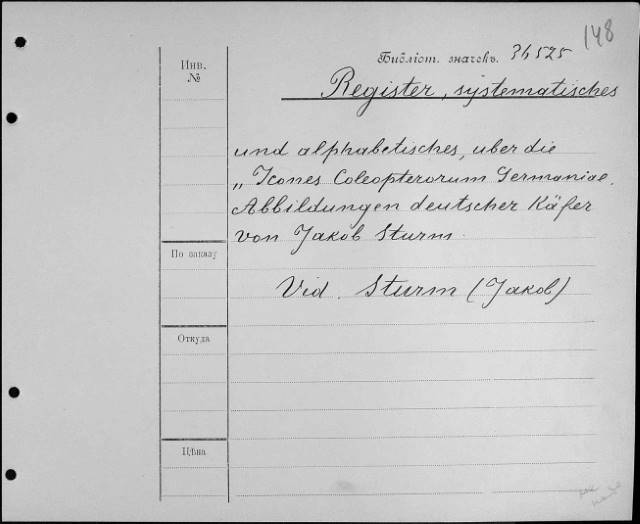 148
Библіот. значекъ. 36525
Инв.
№
Register, systematisches
und alphabetisches, uber die
„Icones Coleopterorum Germaniae.
Abbildungen deutscher Käfer
von Jakob Sturm.
По заказу
Vid. Sturm (Jakob)
Откуда
Цѣна